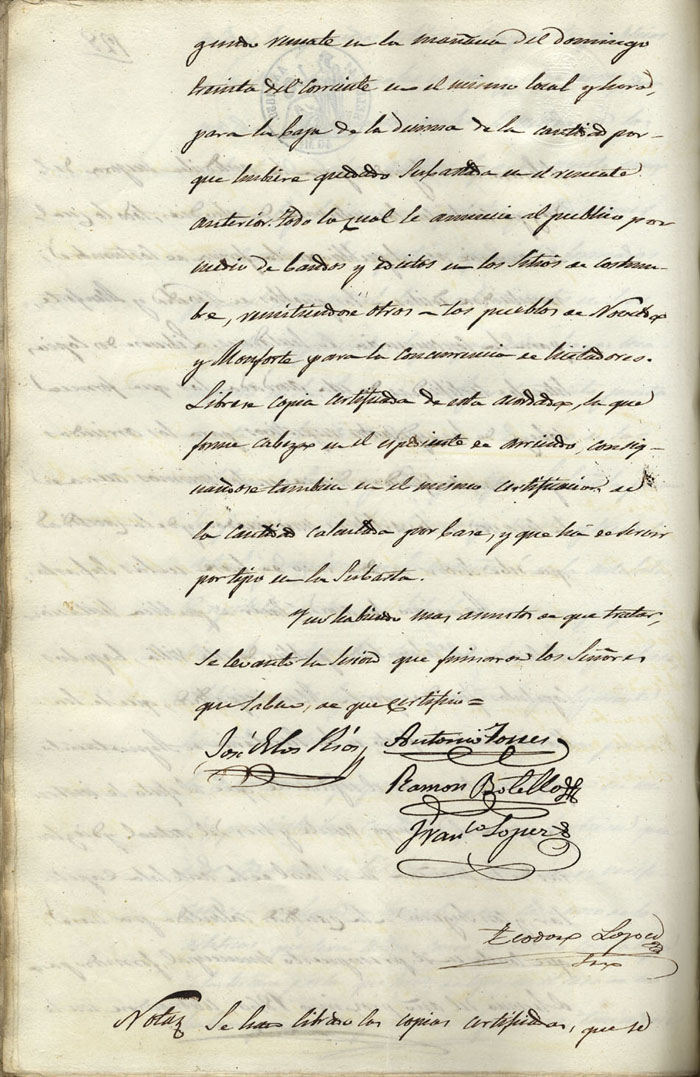 gundo remate en la mañana del domingo
treinta del corriente en el mismo local y hora,
para la baja de la decima de la cantidad por-
que hubiere quedado subastada en el remate
anterior. Todo lo qual se anuncie al publico por
medio de bandos y edictos en los sitios de costum-
bre, remitiendose otros a los pueblos de Novelda
y Monforte para la concurrencia de licitadores.
Librese copia certificada de esta acordada, la que
forme cabeza en el espediente de arriendo, consig-
nandose tambien en el mismo certificacion de
la cantidad calculada por base, y que ha de servir
por tipo en la subasta.
Y no habiendo mas asuntos de que tratar,
se levantó la sesion que firmaron los Señores
que saben, de que certifico =
José de los Rios Antonio Torres
Ramon Botella
Franco Lopez
Teodoro Lopez
Srio
Nota Se han librado las copias certificadas, que se